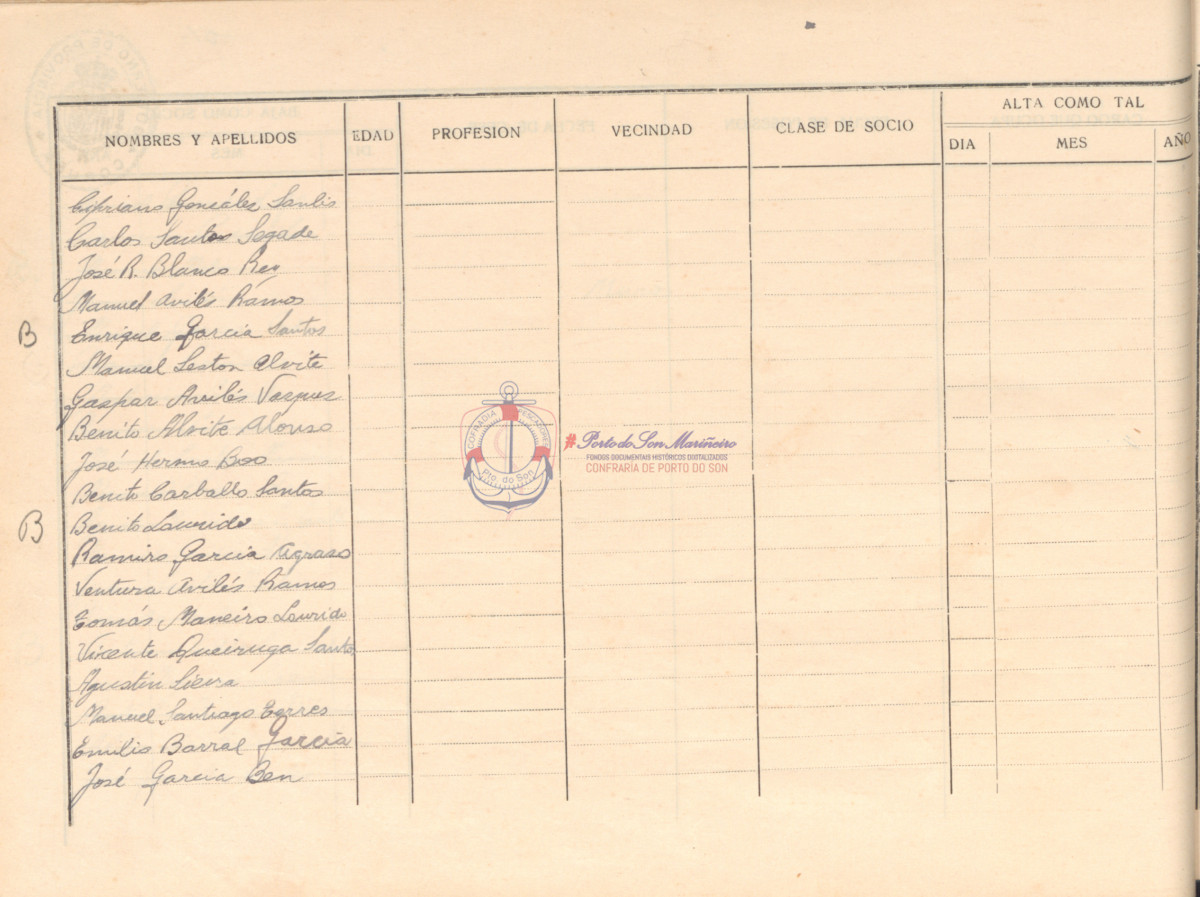 ALTA COMO TAL
NOMBRES Y APELLIDOS EDAD PROFESION VECINDAD CLASE DE SOCIO DIA MES AÑO
Cipriano González Santis
Carlos Santos Segade
José R. Blanco Rey
Manuel Avilés Ramos
B Enrique García Santos
Manuel Leston Alvite
Gaspar Avilés Vazquez
Benito Alvite Alonso
José Hermo Boo
Benito Carballo Santos
B Benito Laurido
Ramiro García Agraso
Ventura Avilés Ramos
Tomás Maneiro Laurido
Vicente Queiruga Santos
Agustin Sieira
Manuel Santiago Torres
Emilio Barral García
José Garcia Ben
COFRADIA PESCADORES
Pto. do Son
#Porto do Son Mariñeiro
FONDOS DOCUMENTAIS HISTÓRICOS DIXITALIZADOS
CONFRARÍA DE PORTO DO SON